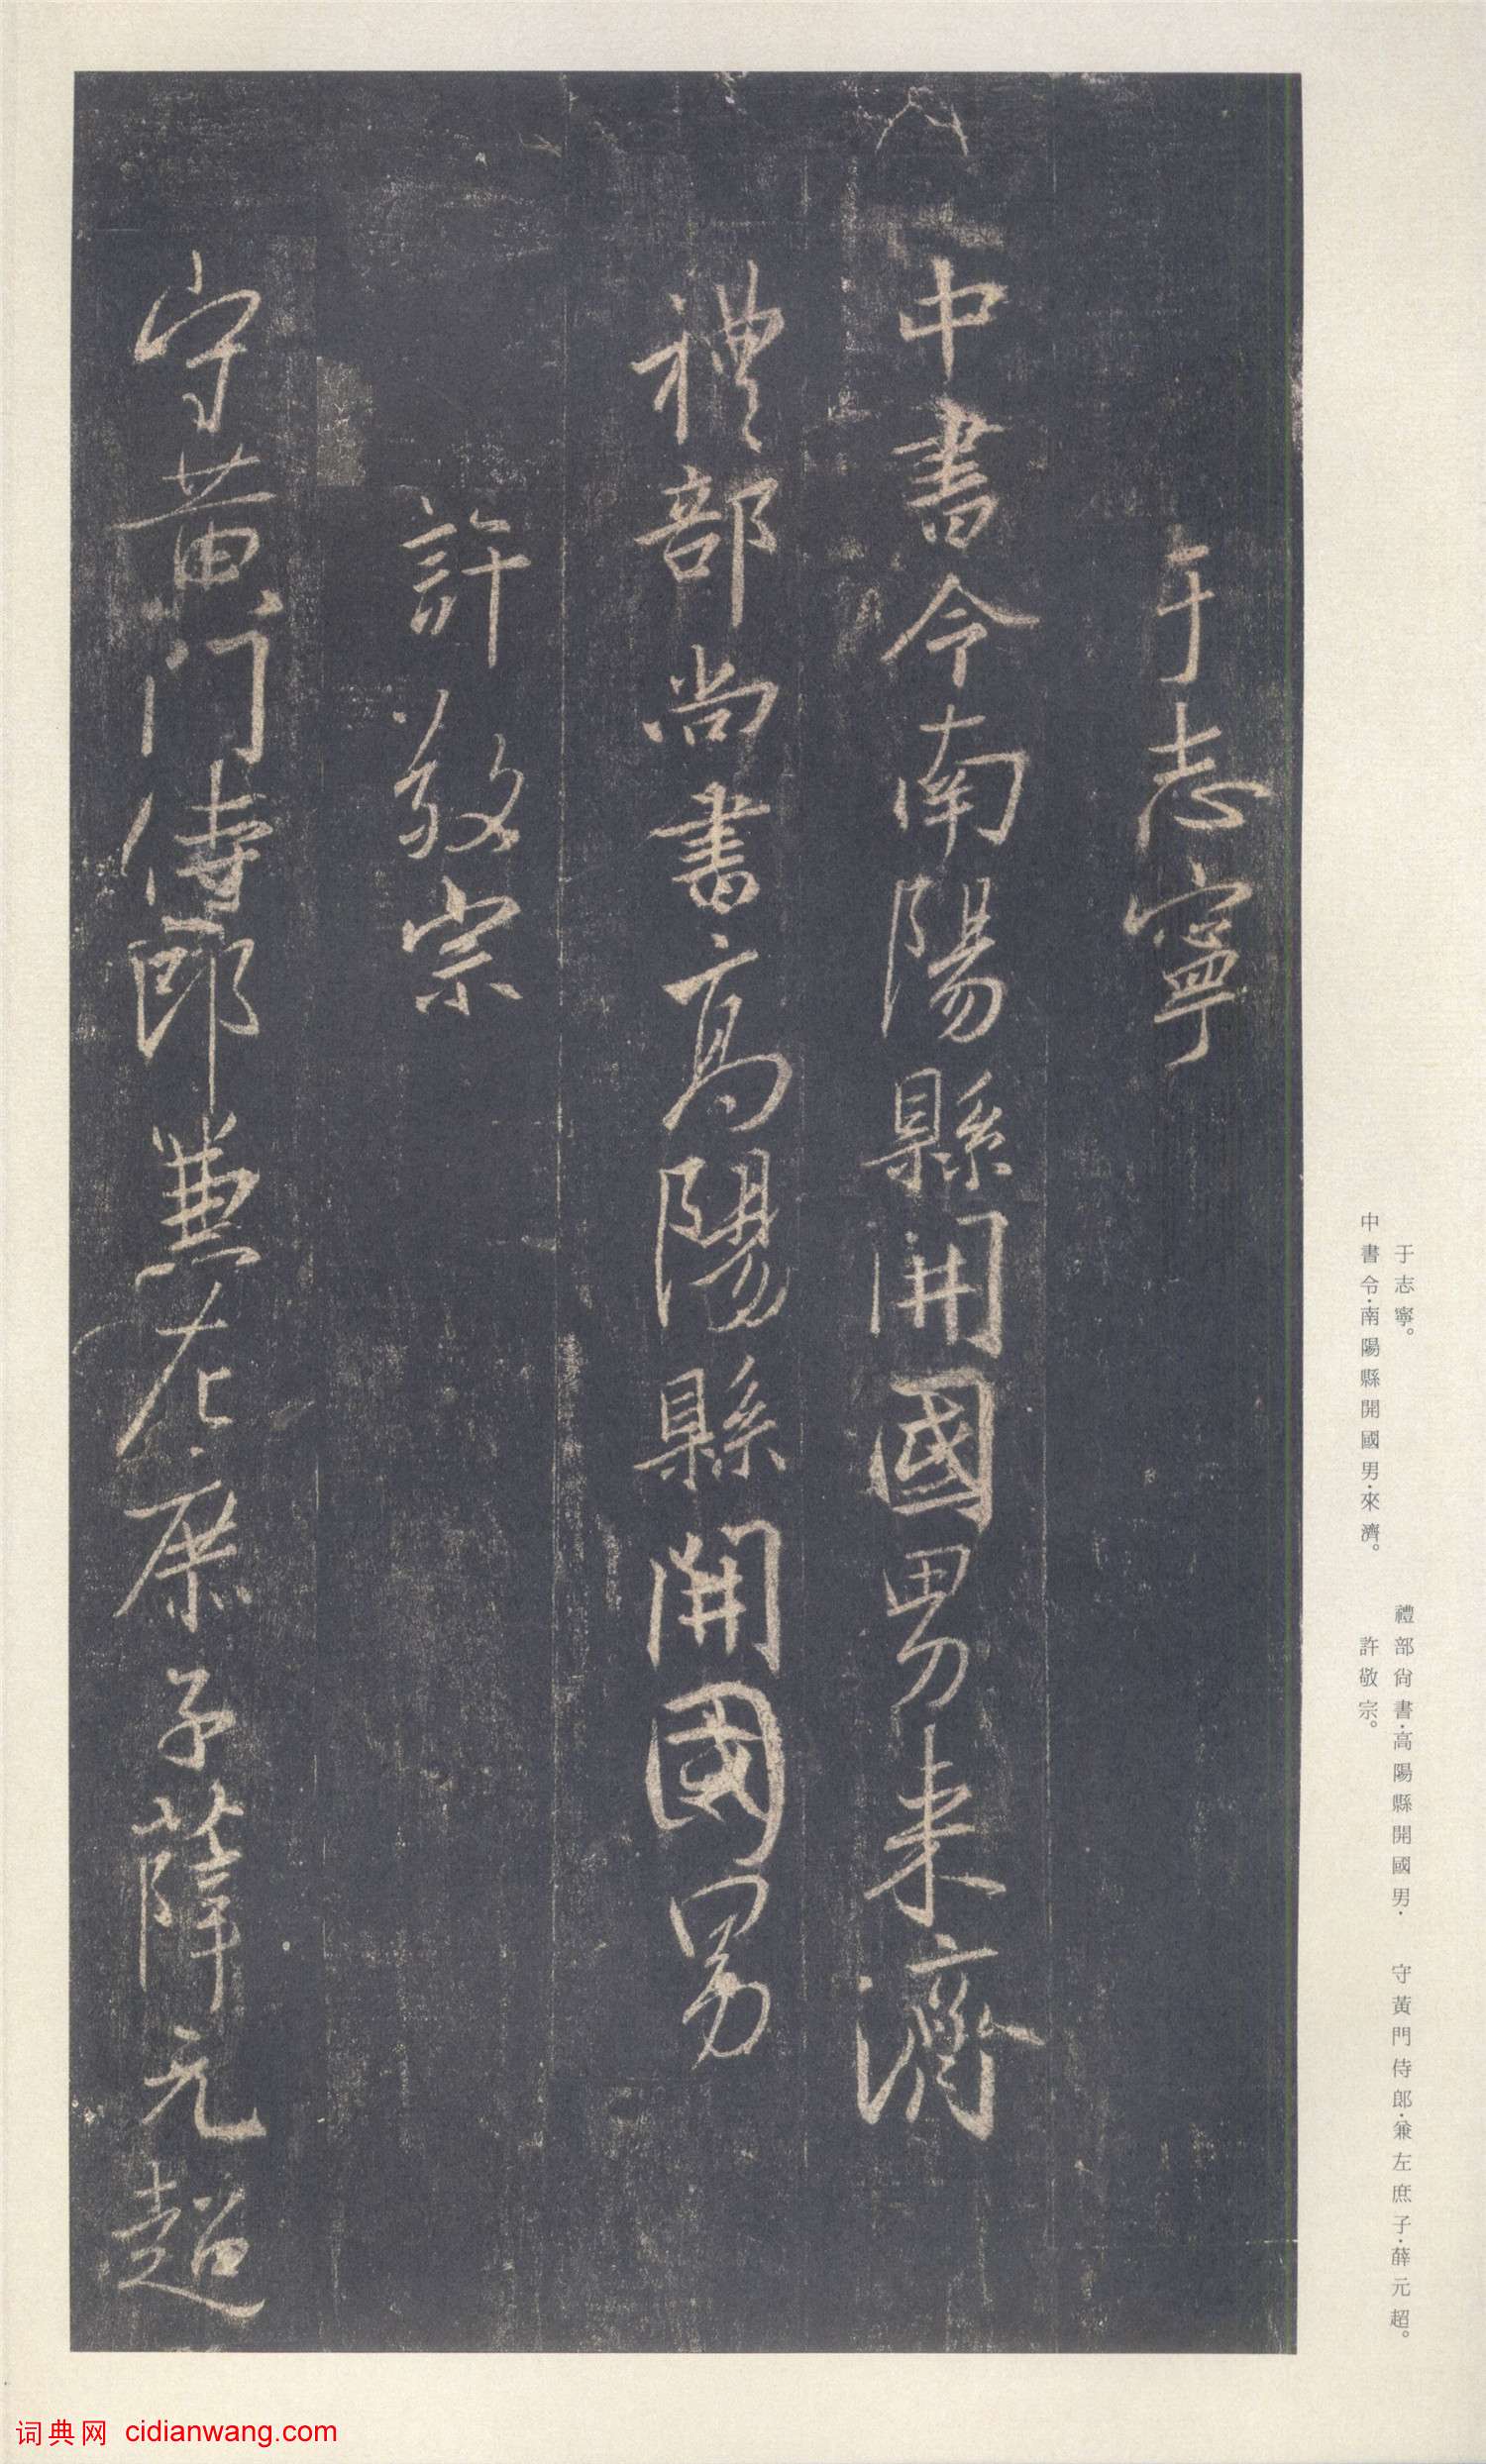 于志寧
中書令南陽縣開國男来濟
禮部尚書高陽縣開國男
許敬宗
守黃門侍郎兼左庶子薛元超
于志寧。
中書令·南陽縣開國男·來濟。
禮部尚書·高陽縣開國男·
許敬宗。
守黃門侍郎·兼左庶子·薛元超。
词典网 cidianwang.com